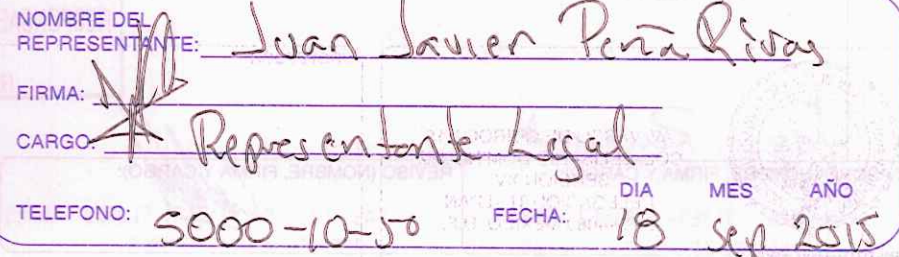 NOMBRE DEL
REPRESENTANTE: Juan Javier Peña Rivas
FIRMA:
CARGO: Representante Legal
DIA MES AÑO
TELEFONO: 5000-10-50 FECHA: 18 sep 2015